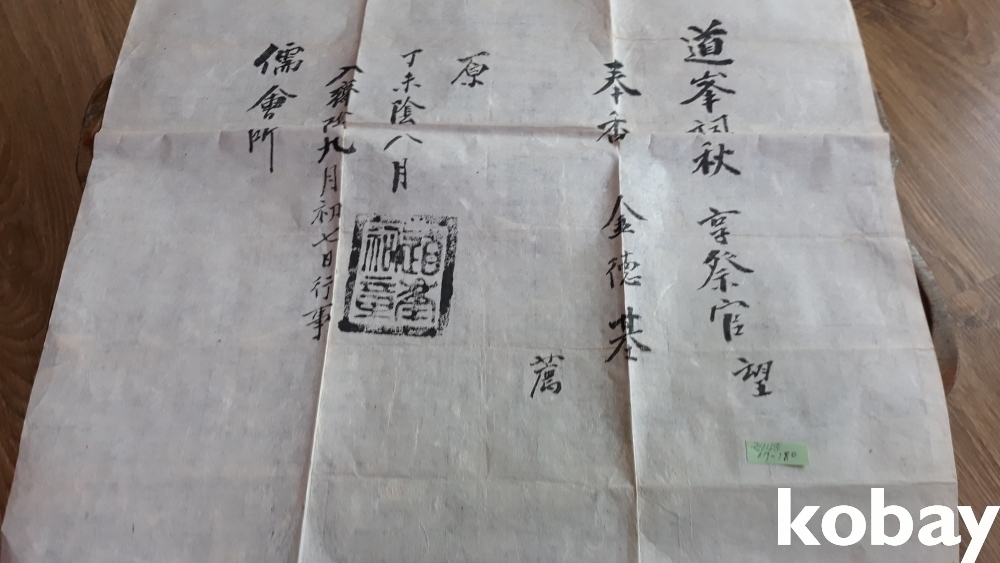 道峯祠秋 享祭官 望
奉香 金德基
薦
原
丁未陰八月
入齋陰九月初七日行事
儒會所
道峯祠章
17-180
kobay